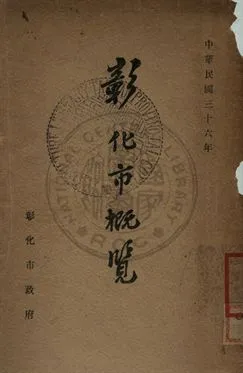 中華民國三十六年
彰化市概覽
彰化市政府